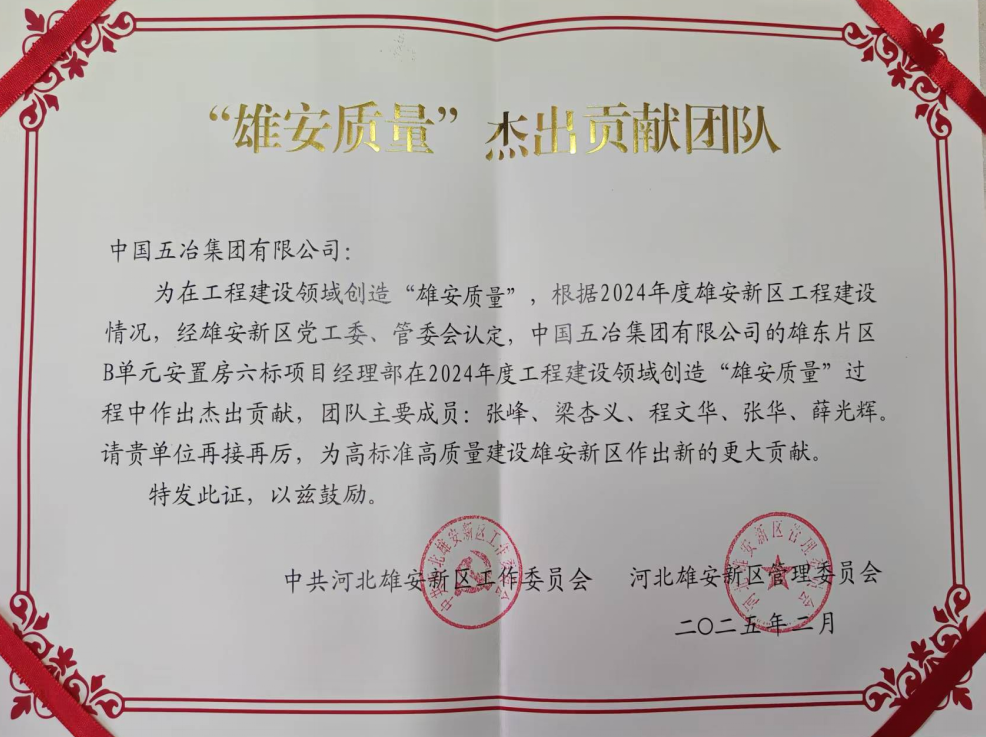 “雄安质量”杰出贡献团队
中国五冶集团有限公司：
为在工程建设领域创造“雄安质量”，根据2024年度雄安新区工程建设
情况，经雄安新区党工委、管委会认定，中国五冶集团有限公司的雄东片区
B单元安置房六标项目经理部在2024年度工程建设领域创造“雄安质量”过
程中作出杰出贡献，团队主要成员：张峰、梁杏义、程文华、张华、薛光辉。
请贵单位再接再厉，为高标准高质量建设雄安新区作出新的更大贡献。
特发此证，以兹鼓励。
中共河北雄安新区工作委员会 河北雄安新区管理委员会
二〇二五年二月
中共河北雄安新区工作委员会
河北雄安新区管理委员会